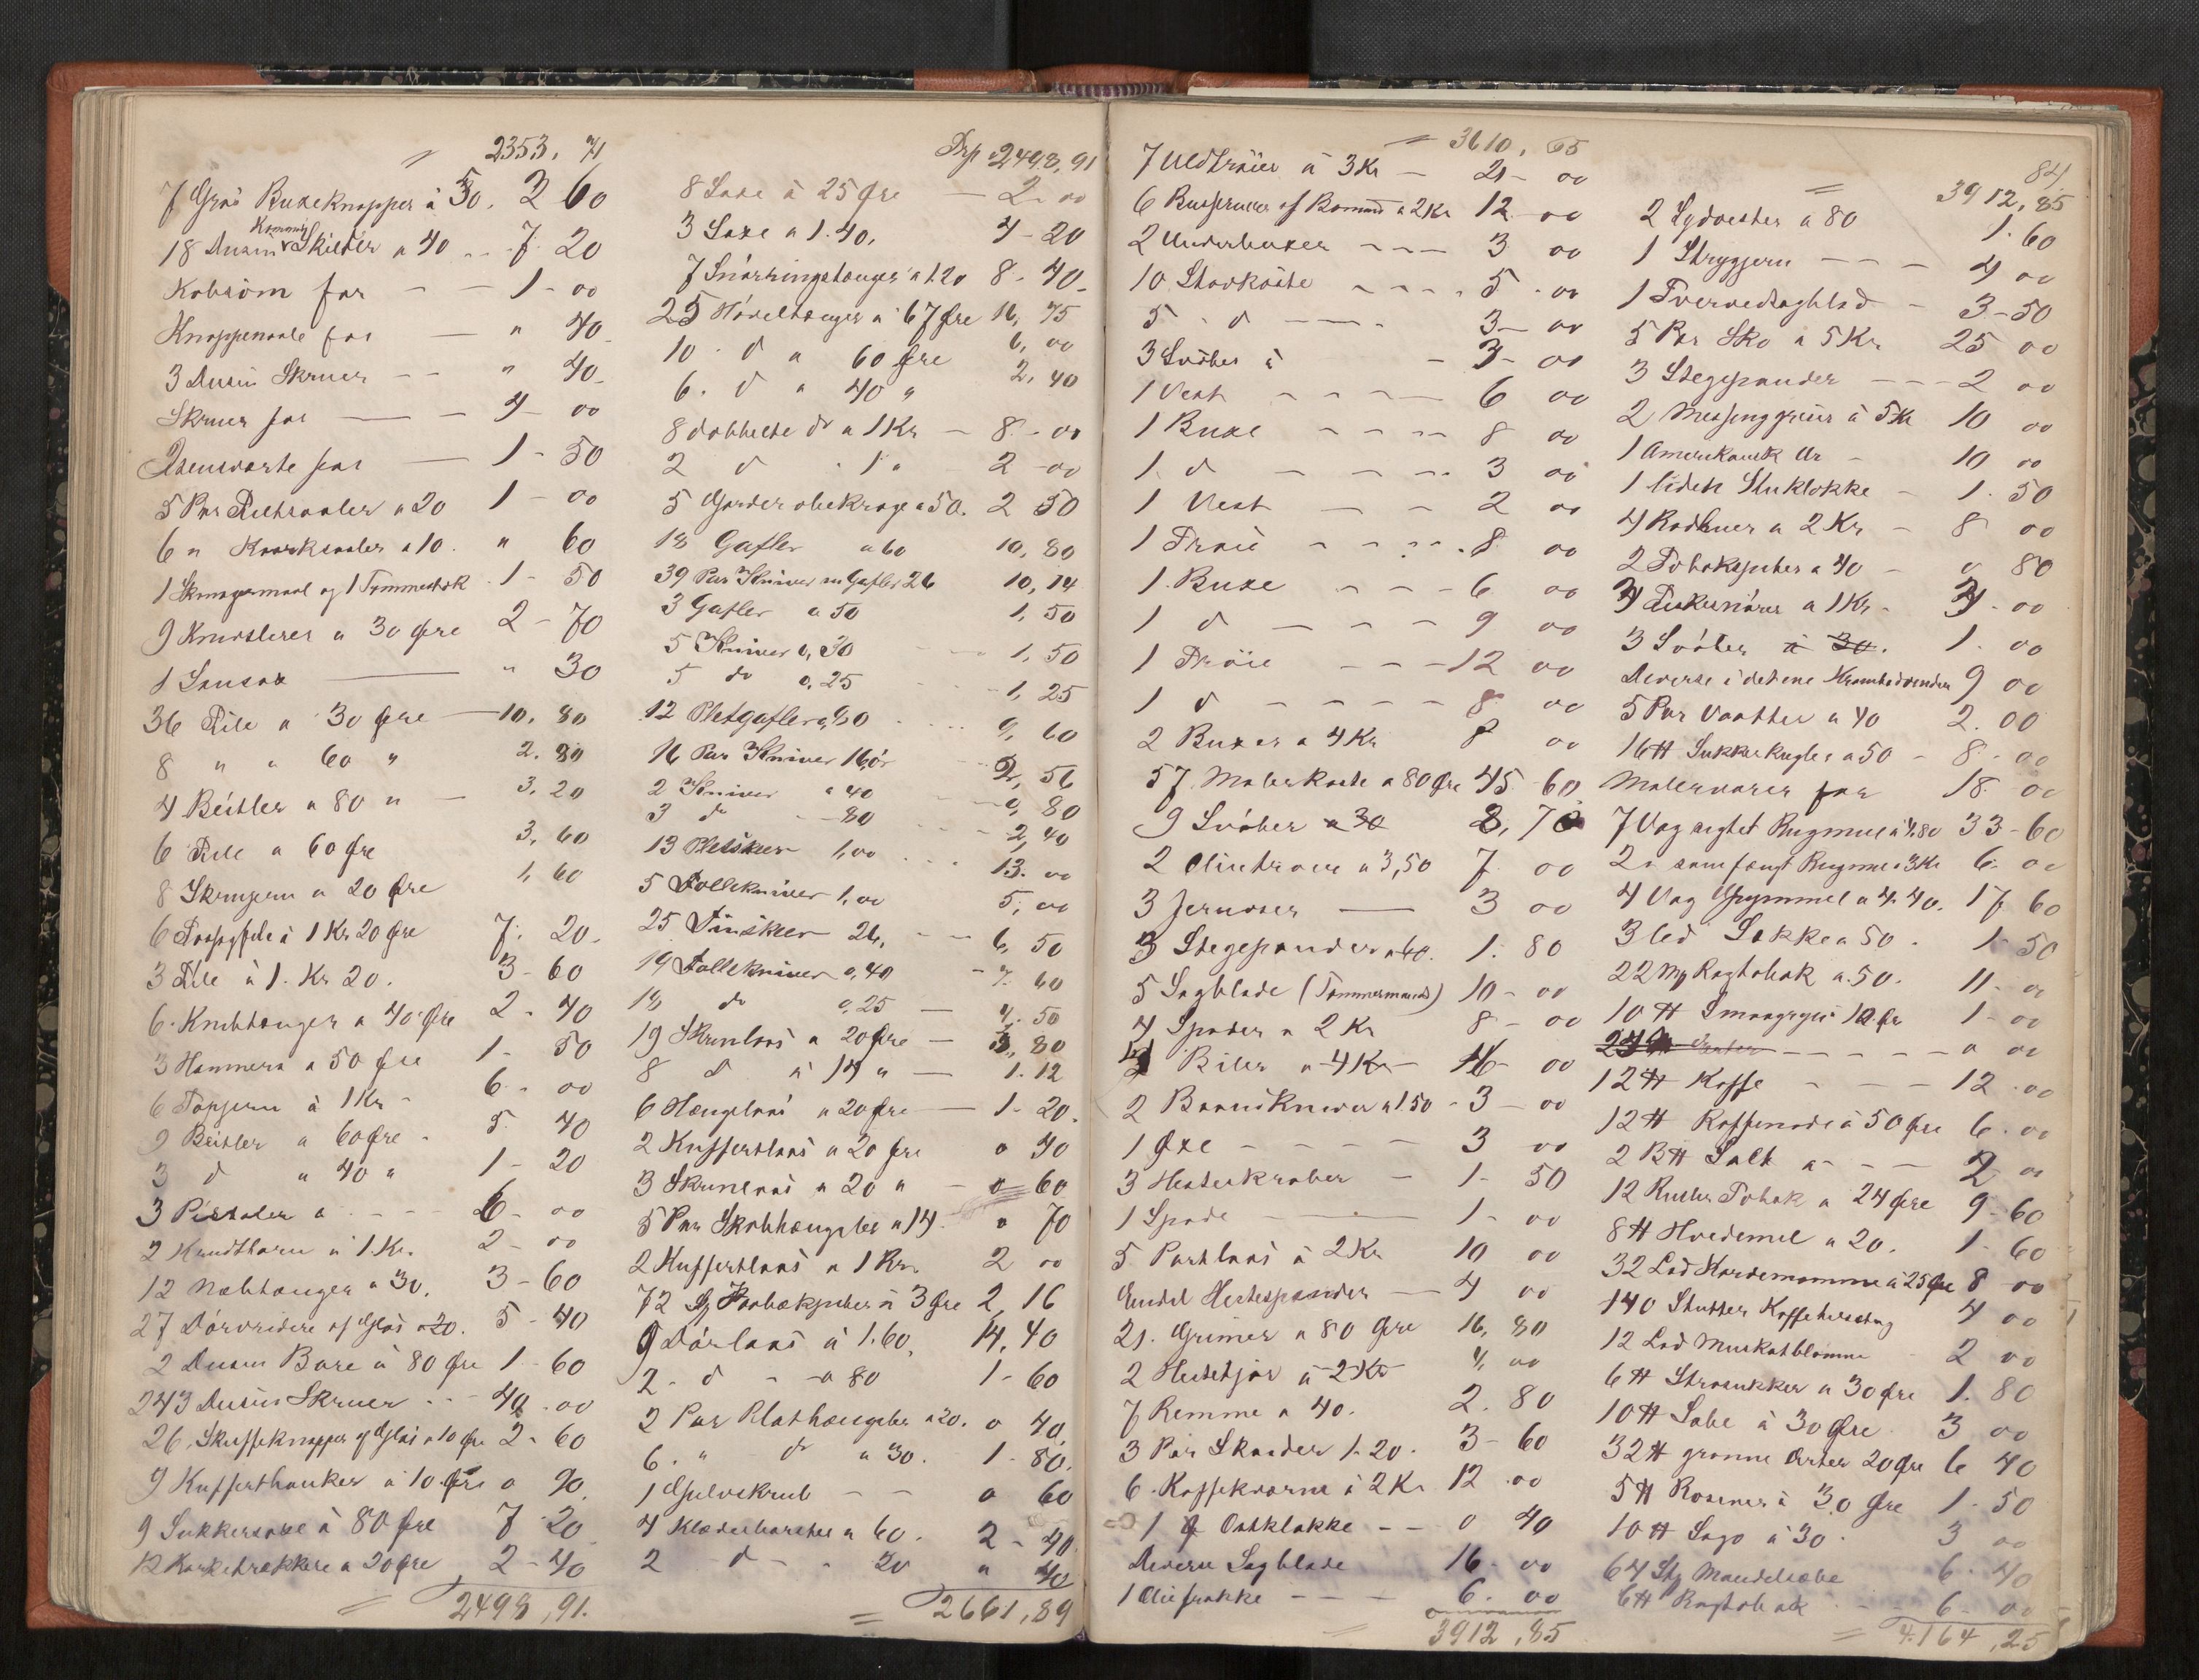 2353, 71
7 Grøs Buxeknapper á 50. 3 60
18 Dusin Kommod Skilder a 40 7. 20
Kobsöm for 1 - 00
Knappenaale for " 40
3 Dusin Skruer " 40
Skruer for 4 00
1 - 50
5 Par a 20 1 - 00
6 " a 10. " 60
1 og 1 Tommestok 1 - 50
9 a 30 Øre 2 - 70
1 Sausax " 30
36 File a 30 Øre 10, 80
8 " a 60 " 2. 80
4 Beitler a 80 " 3, 20
6 File a 60 Øre 3, 60
8 Skrujern a 20 Øre 1, 60
6 á 1 Kr 20 Øre 7. 20
3 File á 1. Kr 20. 3 - 60
6. Knibtænger a 40 Øre 2 - 40
3 Hammera a 50 Øre 1 - 50
6 Topjern á 1 Kr 6. 00
9 Beitler a 60 Øre 5. 40
3 d " 40 " 1 - 20
3 Pistoler a 6 - 00
2 Krudthorn á 1 Kr. 2 - 00
12 Nebtænger a 30. 3 - 60
27 Dörvridere af Glas a 20. 5 - 40
2 Dusin Bore á 80 Øre 1 - 60
243 Dusin Skruer 40 . 00
26, Skuffeknapper af Glas a 10 Øre 2 - 60
9 Kufferthanker á 10 Øre 0 90
9 Sukkersaxe á 80 Øre 7 20
12 Korketrækkere a 20 Øre 2 - 40
2498, 91.
Trsp 2498, 91
8 Saxe á 25 Øre 2 - 00
3 Saxe a 1. 40. 4 - 20
7 Snörringstænger a 1.20 8 - 40
25 Höveltænger a 67 Øre 16, 75
10 . d a 60 Øre 6, 00
6. d a 40 " 2, 40
8 dobbelte do a 1 Kr 8 - 00
2 d . 1 " 2 - 00
5 Garderobekroge a 50. 2 50
18 Gafler a 60 10, 80
39 Par Kniver m Gafler 26 10, 14
3 Gafler a 50 1, 50
5 Kniver 0,30 1, 50
5 do 0,25 1, 25
12 Pletgafler 0,80 9, 60
16 Par Kniver 16 ör 2, 56
2 Kniver a 40 0, 80
3 d 80 2, 40
13 Pletskeer 1,00 13. 00
5 Follekniver 1,00 5, 00
25 Tinskeer 26, 6, 50
19 Follekniver 0,40 7. 60
18 do 0,25 4. 50
19 Skrunlaas a 20 Øre 3, 80
8 d á 14 " 1. 12
6 Hængelaas a 20 Øre 1 - 20.
2 Kuffertlaas a 20 Øre 0 40
3 Skrunlaas a 20 " 0 60
5 Par Skabhængsler a 14. 0 70
2 Kuffertlaas a 1 Kr. 2 00
72 á 3 Øre 2, 16
9 Dörlaas á 1.60, 14, 40
2 - d a 80 1 - 60
2 Par Plathængsler a 20. 0 40
6. " do a 30. 1 - 80.
1 Gulvskrub 0 60
4 Klædeborster a 60. 2 - 40
2 d 20 " 40
2661, 89
3610, 65
7 Uldtröier á 3 Kr 21 - 00
6 Busseruner af Bomuld a 2 Kr 12 - 00
2 Underbuxer 3 00
10 Stovkóste 5 . 00
5 . d 3 - 00
3 Svöber á 3 - 00
1 Vest 6 00
1 Buxe 8 00
1. d 3 00
1 Vest 2 00
1 Tröie 8 00
1. Buxe 6 00
1 d 9 00
1 Tröie 12 00
1 d 8 00
2 Buxer a 4 Kr 8 00
57 Malerkoste a 80 Øre 45 - 60
9 Svöber a 30 2, 70
2 a 3,50 7. 00
3 3 00
3 Stegepander a 60. 1. 80
5 Sagblade (Tömmermands) 10 - 00
4 Spader a 2 Kr 8 - 00
4 Biler a 4 Kr 16 - 00
2 Baandkniver a 1.50 3 - 00
1 Øxe 3 00
3 Hesteskraber 1 - 50
1 Spade 1 - 00
5 Portlaas á 2 Kr 10 00
Endel Hestespænder 4 00
21. Grimer a 80 Øre 16, 80
2 Hestetjor á 2 Kr 4, 00
7 Remme a 40. 2. 80
3 Par Skaader 1. 20. 3 - 60
6. Kaffekværne á 2 Kr 12 . 00
1 Ostklokke 0 40
Diverse Sagblade 16 - 00
1 Oliefrakke 6. 00
3912, 85
84
3912, 85
2 Sydvester a 80 1. 60
1 Strygjern 4 00
1 Tvervedsagblad 3 - 50
5 Par Sko á 5 Kr. 25 00
3 Stegepander 2 00
2 Messinggriier á 5 Kr 10 00
1 Amerikansk Ur 10 00
1 liden Stuklokke 1. 50
4 Rodhuer a 2 Kr 8 00
2 Tobakspiber a 40 0 80
3 Fiskesnörer a 1 Kr 3. 00
3 Svöber á 30. 1. 00
Diverse i det ene 9 00
5 Par Vaatter a 40 2. 00
16 ℔ Sukkerkugler a 50 8 - 00
Malervarer for 18 00
7 Vog sigtet Rugmel á 4.80 33 - 60
2 " samfængt Rugmel a 3 Kr 6. 00
4 Vog Bygmmel a 4.40. 17 60
3 led Sække a 50. 1 - 50
22 Mg Ragtobak a 50. 11 - 00
10 ℔ Smaagryn 10 Ør 1 - 00
0 00
12 ℔ Kaffe 12 . 00
12 ℔ Kaffenode á 50 Øre 6. 00
2 B℔ Salt a 2 00
12 Ruller Tobak a 24 Øre 9 - 60
8 ℔ Hvedemel a 20. 1 - 60
32 Lod Kardemomme á 25 Øre 8 - 00
140 Stutter Kaffeherstag 4 00
12 Lod Muskatblomme 2 00
6 ℔ Strosukker a 30 Øre 1. 80
10 ℔ Sabe á 30 Øre 3 00
32 ℔ grønne Ærter 20 Øre 6 40
5 ℔ Rosiner á 30 Øre 1 - 50
10 ℔ Sago á 30 3 00
64 Stk Mandelsæbe 6. 40
6 ℔ Ragtobak 6 - 00
4.164, 25